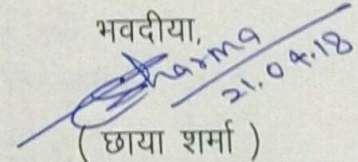 भवदीया,
Sharma
21.04.18
( छाया शर्मा )